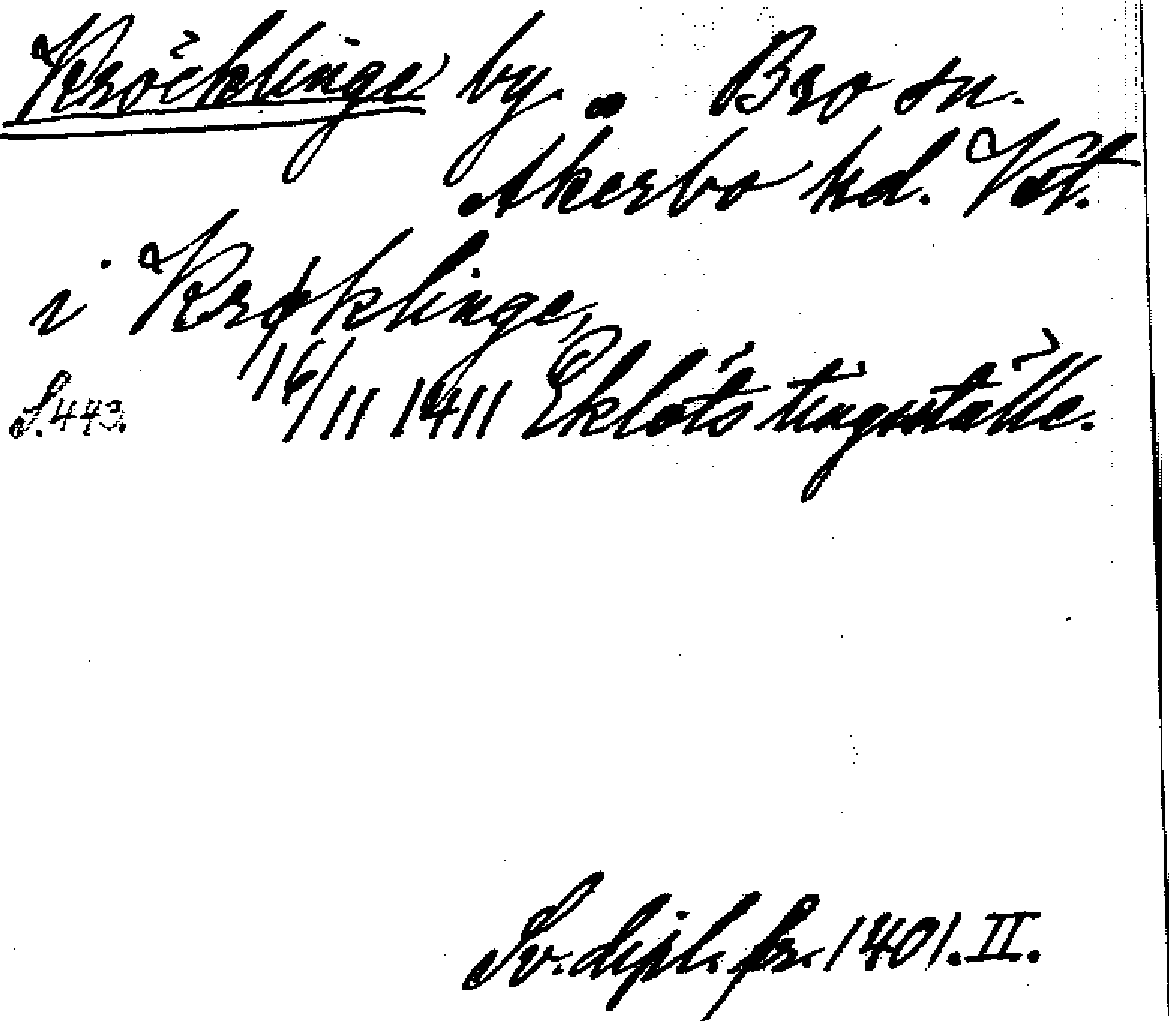 Kröcklinge by. Bro sn.
Åkerbo hd. Vstm.
i Krøklinge,
S. 443. 16/11 1411 Eklöts tingställe.
Sv. dipl. fr. 1401. II.